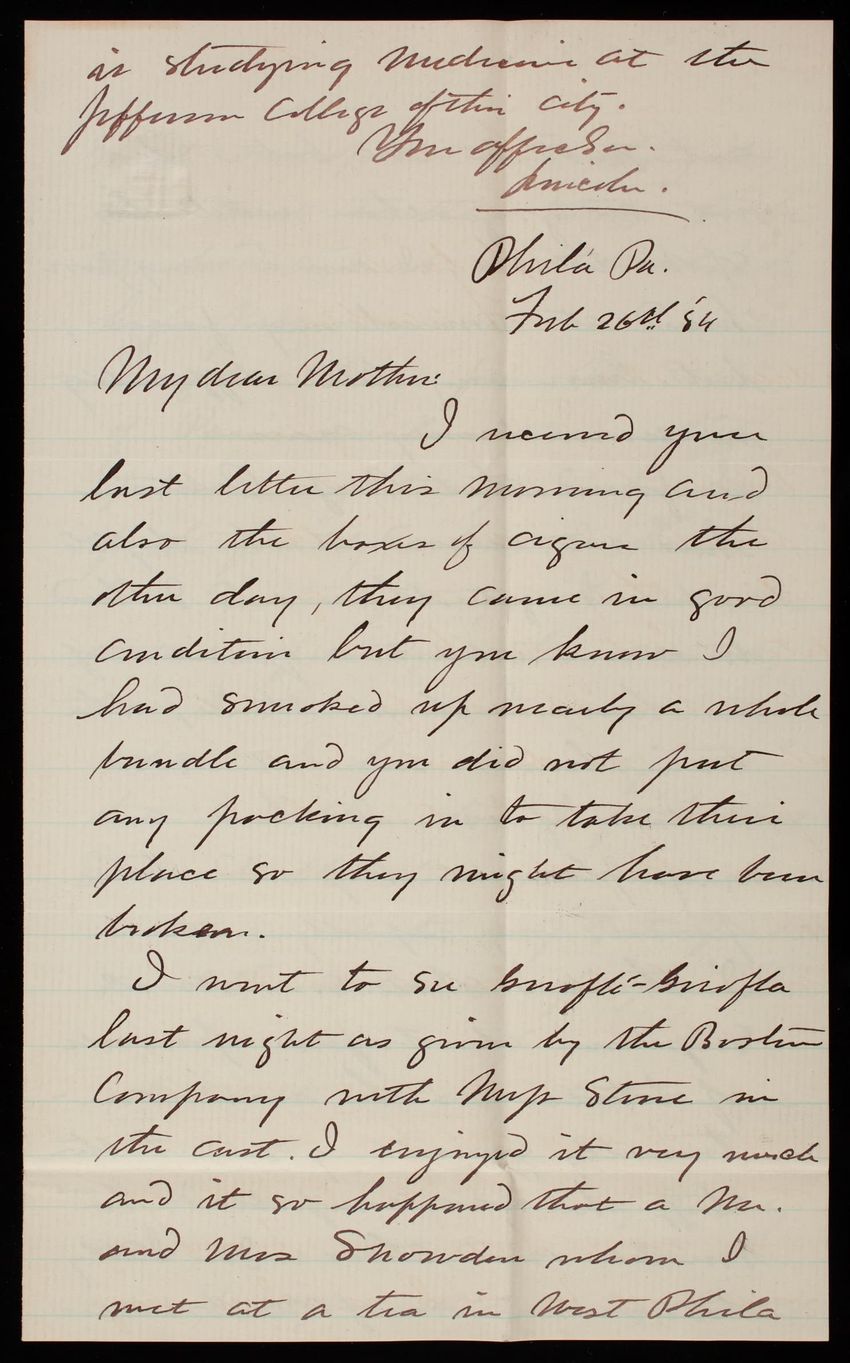 is studying Medicine at the
Jefferson College of this city.
Your affec Son.
Lincoln.
Phila Pa.
Feb 26th '84
My dear Mother:
I received your
last letter this morning and
also the boxes of cigars the
other day, they came in good
condition but you know I
had smoked up nearly a whole
bundle and you did not put
any packing in to take their
place so they might have been
broken.
I went to see Giroflé-Girofla
last night as given by the Boston
Company with Miss Stone in
the cast. I enjoyed it very much
and it so happened that a Mr.
and Mrs Snowden whom I
met at a tea in West Phila